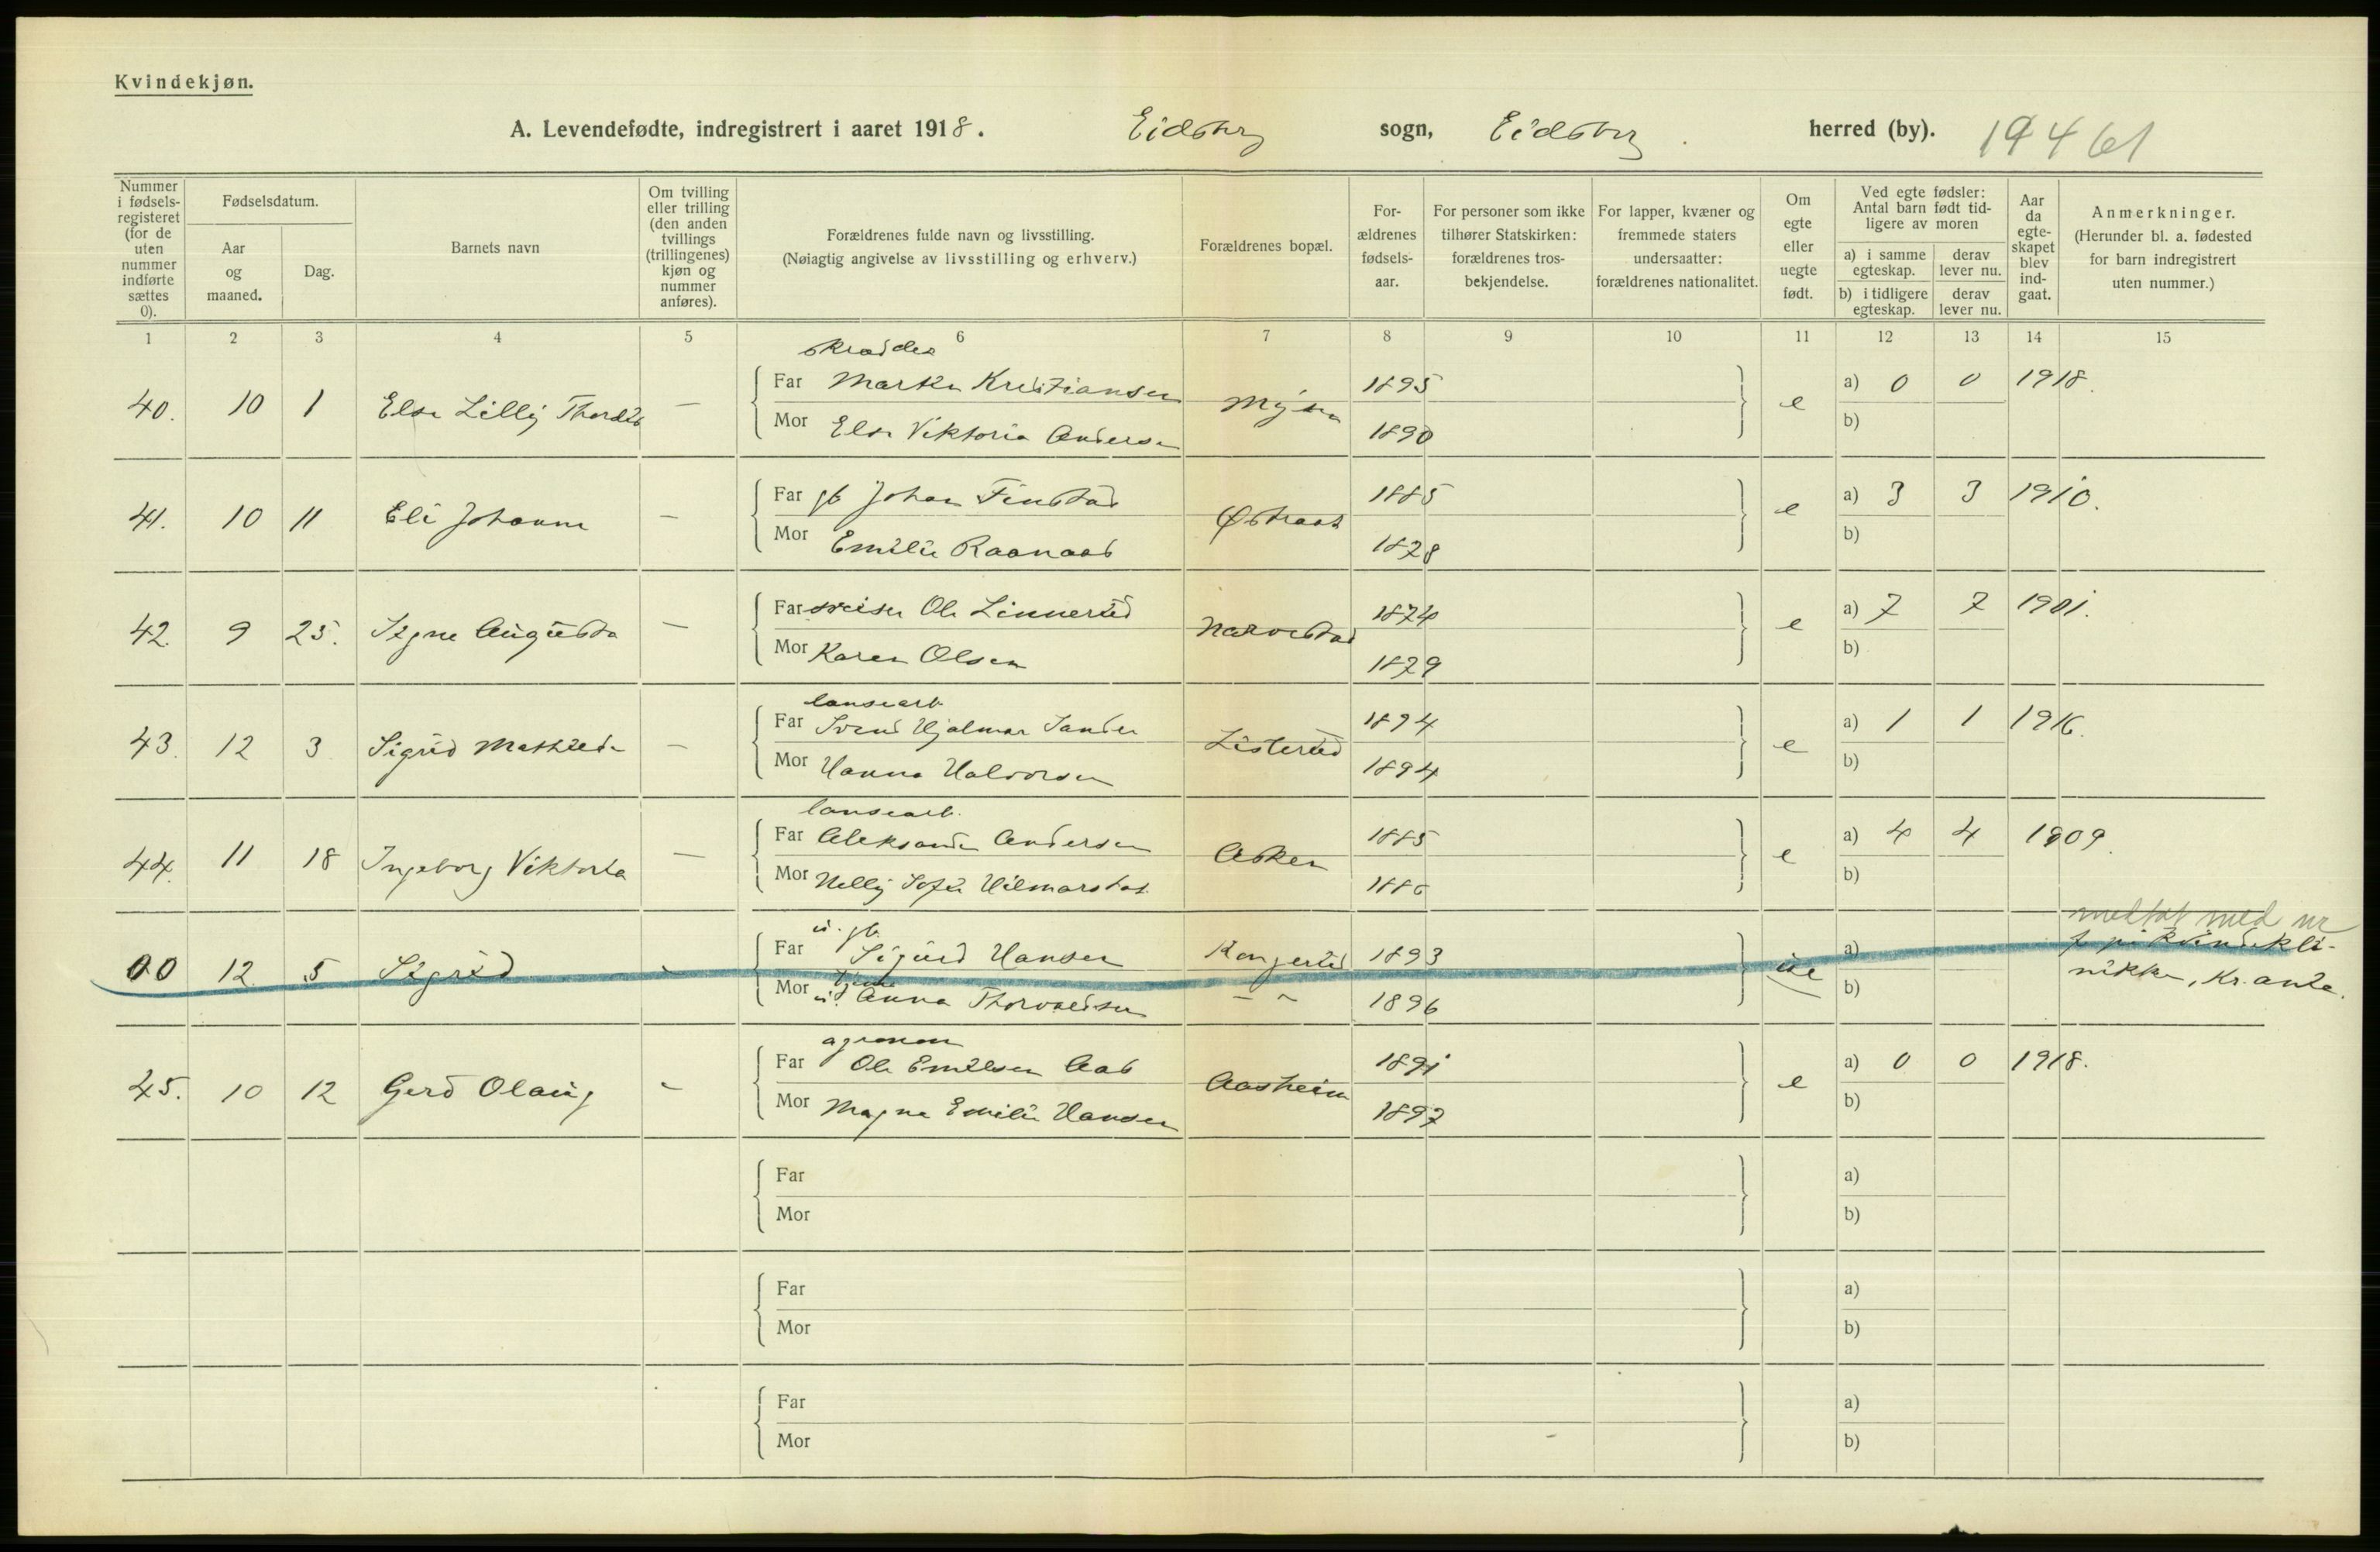 Kvindekjøn.
A. Levendefødte, indregistrert i aaret 1918. Eidsberg sogn, Eidsberg herred (by). 19461
Nummer i fødselsregisteret (for de uten nummer indførte sættes 0).
Fødselsdatum.
Aar og maaned.
Dag.
Barnets navn
Om tvilling eller trilling (den anden tvillings (trillingenes) kjøn og nummer anføres).
Forældrenes fulde navn og livsstilling.
(Nøiagtig angivelse av livsstilling og erhverv.)
Forældrenes bopæl.
Forældrenes fødselsaar.
For personer som ikke tilhører Statskirken: forældrenes trosbekjendelse.
For lapper, kvæner og fremmede staters undersaatter: forældrenes nationalitet.
Om egte eller uegte født.
Ved egte fødsler: Antal barn født tidligere av moren
a) i samme egteskap.
derav lever nu.
b) i tidligere egteskap.
derav lever nu.
Aar da egteskapet blev indgaat.
Anmerkninger.
(Herunder bl. a. fødested for barn indregistrert uten nummer.)
1 2 3 4 5 6 7 8 9 10 11 12 13 14 15
skrædder
Far Martin Kristiansen 1895 a) 0 0 1918.
40. 10 1 Else Lilly Thordis — Mysen e
Mor Else Viktoria Andersen 1890 b)
Far gb Johan Finstad 1885 a) 3 3 1910.
41. 10 11 Eli Johanne — Østraat e
Mor Emilie Raanaas 1878 b)
Far sveiser Ole Linnerud 1874 a) 7 7 1901.
42. 9 25. Signe Augusta — Narvestad e
Mor Karen Olsen 1879 b)
landearb.
Far Svend Hjalmar Sander 1894 a) 1 1 1916.
43. 12 3 Sigrid Mathilde — Listerud e
Mor Hanna Halvorsen 1894 b)
landearb.
Far Aleksander Andersen 1885 a) 4 4 1909.
44. 11 18 Ingeborg Viktoria — Asken e
Mor Nelly Sofie Hilmarstat 1886 b)
u. gb.
Far Sigurd Hansen Kongerud 1893 a)
00 12 5 Sigrid - ue
Mor Anna Thorvaldsen — 1896 b)
medtat med nr
7 på Kvindekli-
nikken, Kr.ania.
agronom
Far Ole Emilsen Aas 1891 a) 0 0 1918.
45. 10 12 Gerd Olaug - Aasheim e
Mor Magna Emilie Hansen 1897 b)
Far a)
Mor b)
Far a)
Mor b)
Far a)
Mor b)